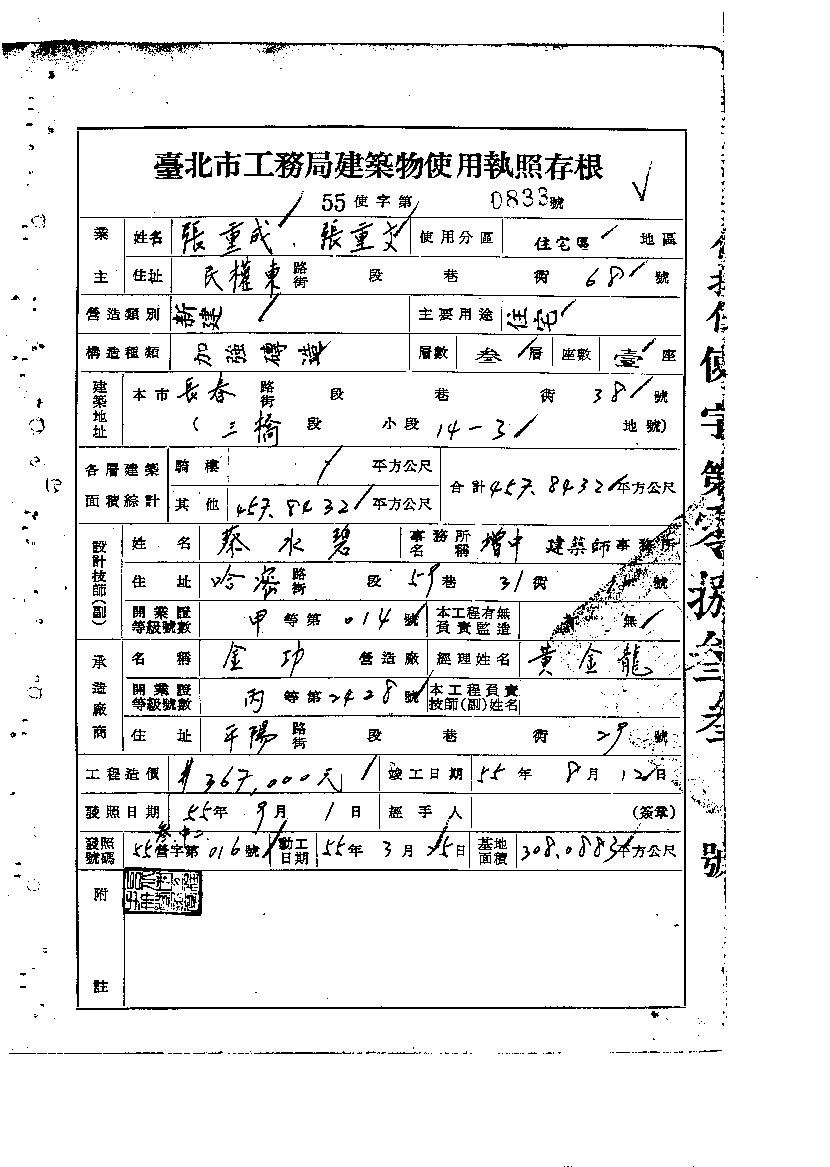 臺北市工務局建築物使用執照存根
55 使字第 0833號
業主 姓名 張重成、張重文 使用分區 住宅區 地區
住址 民權東 路街 段 巷 街 68 號
營造類別 新建 主要用途 住宅
構造種類 加強磚造 層數 叁 層 座數 壹 座
建築地址 本市 長春 路街 段 巷 街 38 號
( 三橋 段 小段 14-3 地號)
各層建築面積綜計 騎樓 平方公尺 合計 457.8432 平方公尺
其他 457.8432 平方公尺
設計技師(副) 姓名 蔡水碧 事務所名稱 增中 建築師事務所
住址 哈密 路街 段 59 巷 31 街 號
開業證等級號數 甲 等第 014 號 本工程有無負責監造 無
承造廠商 名稱 金功 營造廠 經理姓名 黃金龍
開業證等級號數 丙 等第 2428 號 本工程負責技師(副)姓名
住址 平陽 路街 段 巷 街 29 號
工程造價 #367,000元 竣工日期 55 年 8 月 12 日
發照日期 55 年 9 月 1 日 經手人 (簽章)
發照號碼 55 營字第 016 號 動工日期 55 年 3 月 25 日 基地面積 308.0883 平方公尺
附註
使字第零捌叁叁 號